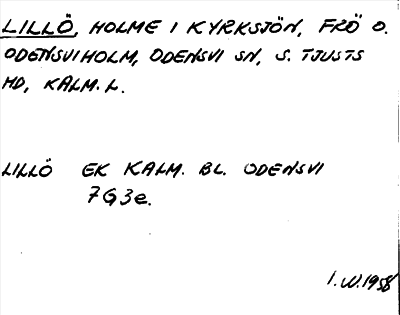 LILLÖ, HOLME I KYRKSJÖN, FRÖ O.
ODENSVIHOLM, ODENSVI SN, S. TJUSTS
HD, KALM. L.
LILLÖ EK KALM. BL. ODENSVI
7G3e.
I.W.1958